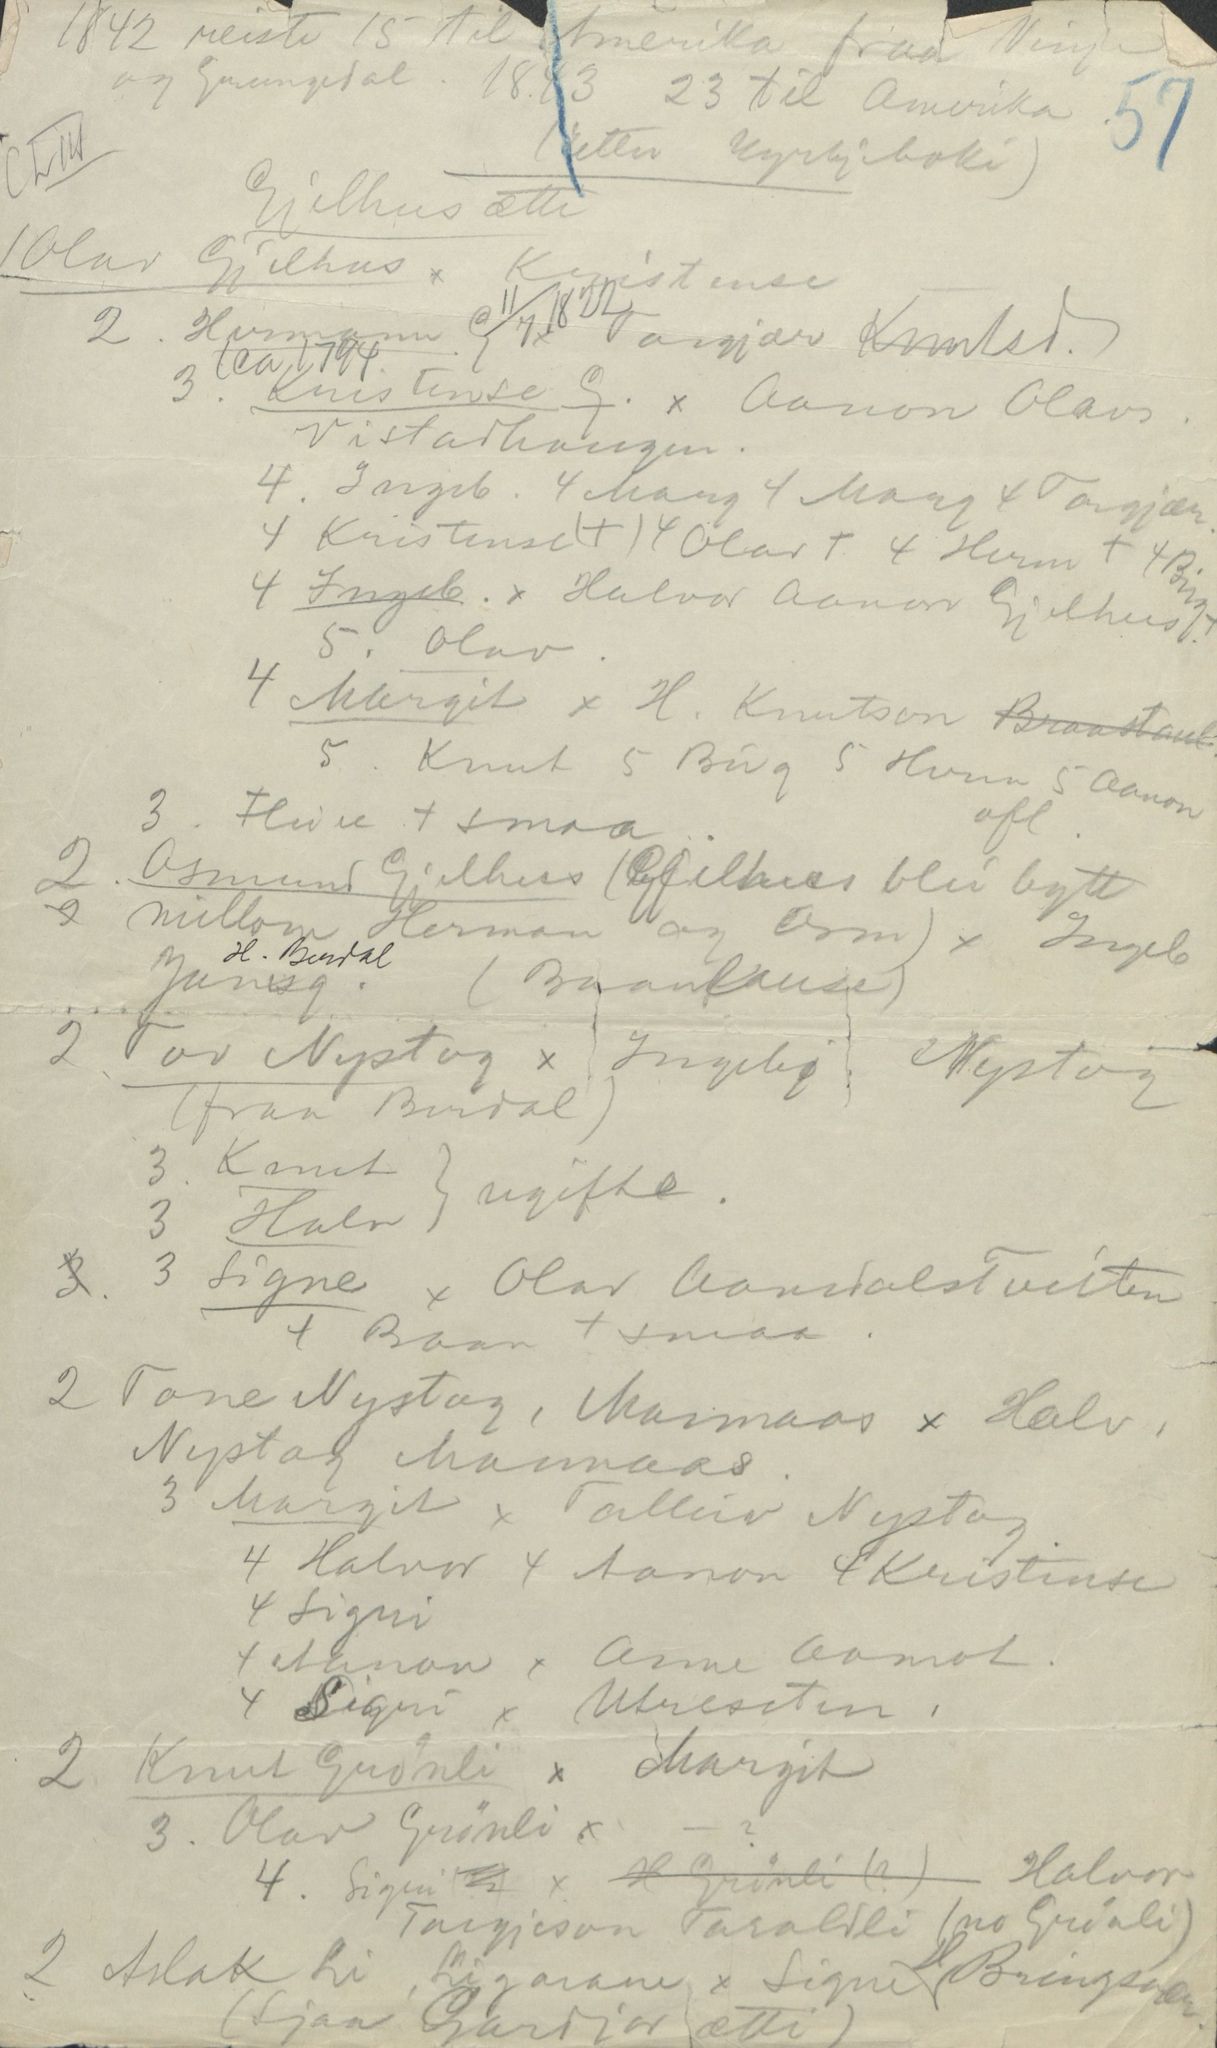 1842 reiste 15 til Amerika fraa Vinje
og Grungedal. 1843 23 til Amerika
57
(etter Kyrkjeboki)
Gjelhus ætti
1 Olav Gjelhus x Kristense
2. Hermann G 11/7 1822 x Torgjær Knutsd.
(ca 1794
3. Kristense G. x Aanon Olavs.
Vistadhaugen.
4. Ingeb. 4 Marg 4 Marg 4 Torgjær.
4 Kristense (+) 4 Olav + 4 Herm + 4 Birg +
4 Ingeb. x Halvor Aanons Gjelhus
5. Olav.
4 Margit x H. Knutson
5. Knut 5 Birg 5 Herm 5 Aanon
ofl.
3. Fleire + smaa.
2. Osmund Gjelhus (Gjelhus blei bytt
millom Herman og Osm) x Ingeb
H. Berdal
(Baanlause)
2. Tov Nystog x Ingebj. Nystog
(fraa Berdal)
3. Knut } ugifte.
3 Halv
3 Signe x Olav Aamdalstveiten
+ Baan + smaa.
2 Tone Nystog, Manmaas x Halv.
Nystog Manmaas.
3 Margit x Talleiv Nystog
4 Halvor 4 Aanon 4 Kristense
4 Sigri
4 Aanon x Anne Aamot.
4 Sigri x Utreseten.
2 Knut Grönli x Margit
3. Olav Grönli x — ?
4. Sigri x H Grönli (?) Halvor
Torgjeson Taraldli (no Grönli)
2 Aslak Li, Ligarane x Signe H Bringsvær.
(Sjaa Gardjor ætti)